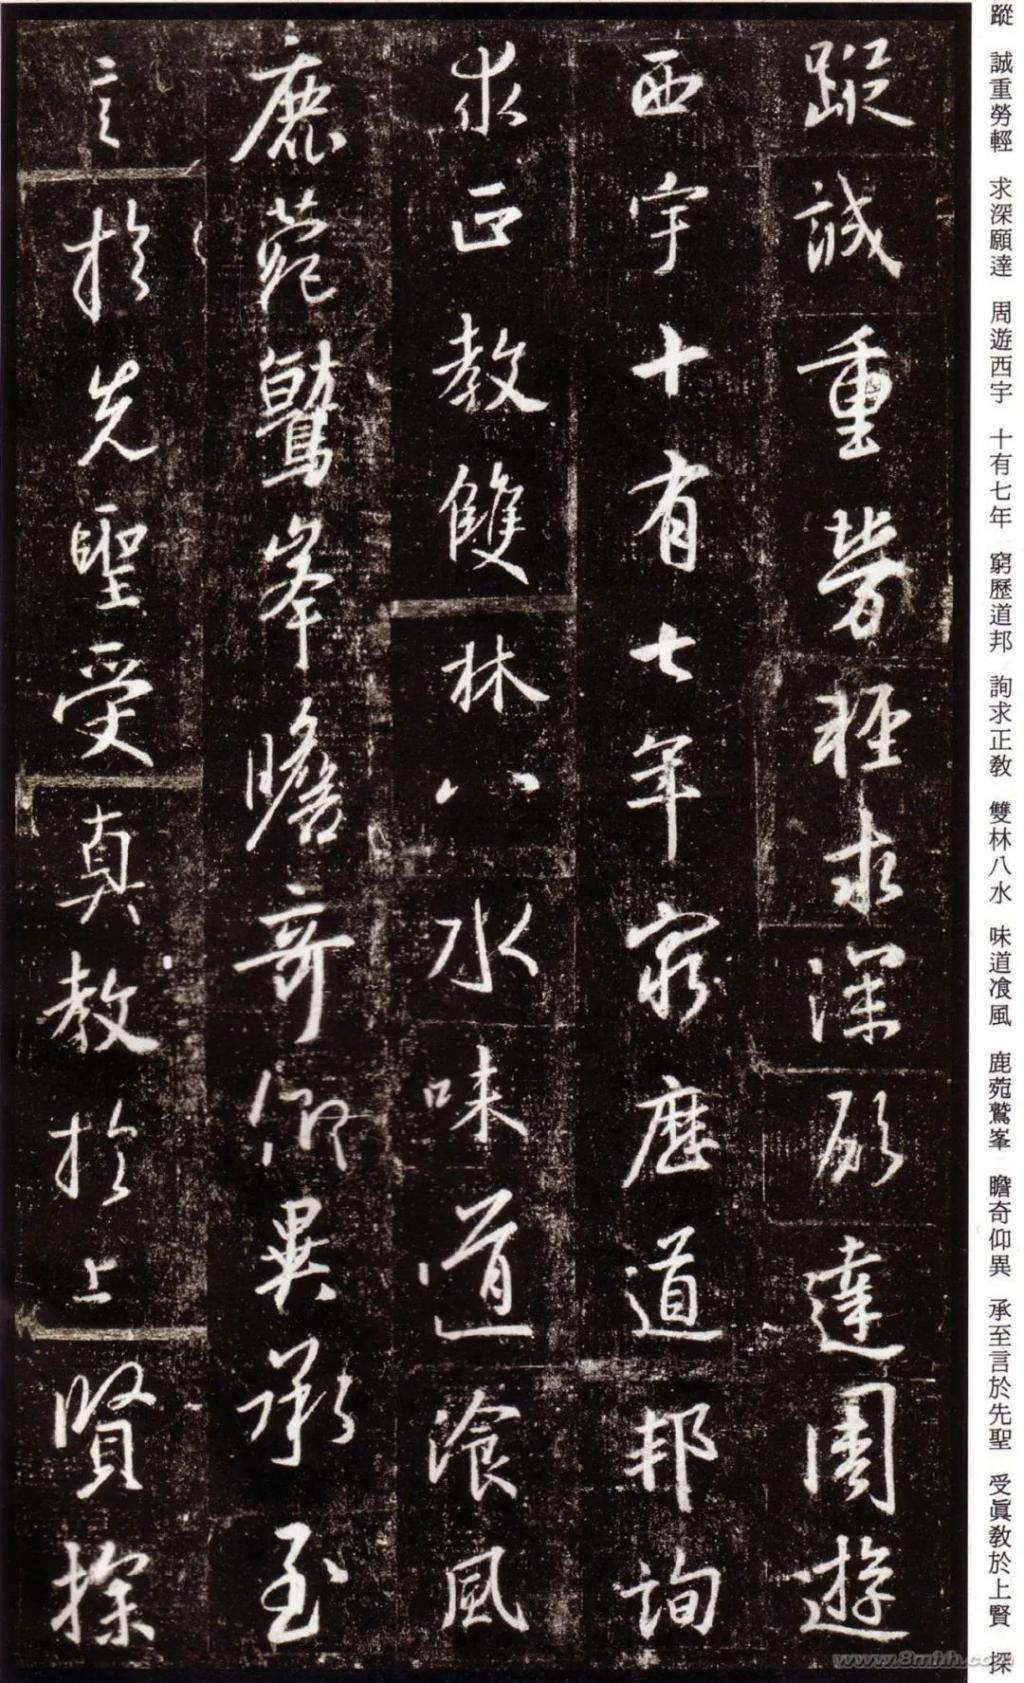 蹤 誠重勞輕 求深願達 周遊西宇 十有七年 窮歷道邦 詢求正教 雙林八水 味道飡風 鹿菀鷲峯 瞻奇仰異 承至言於先聖 受眞教於上賢 探
蹤誠重勞輕求深願達周遊
西宇十有七年窮歷道邦詢
求正教雙林八水味道飡風
鹿菀鷲峯瞻奇仰異承至
言於先聖受真教於上賢探
www.8mhh.com